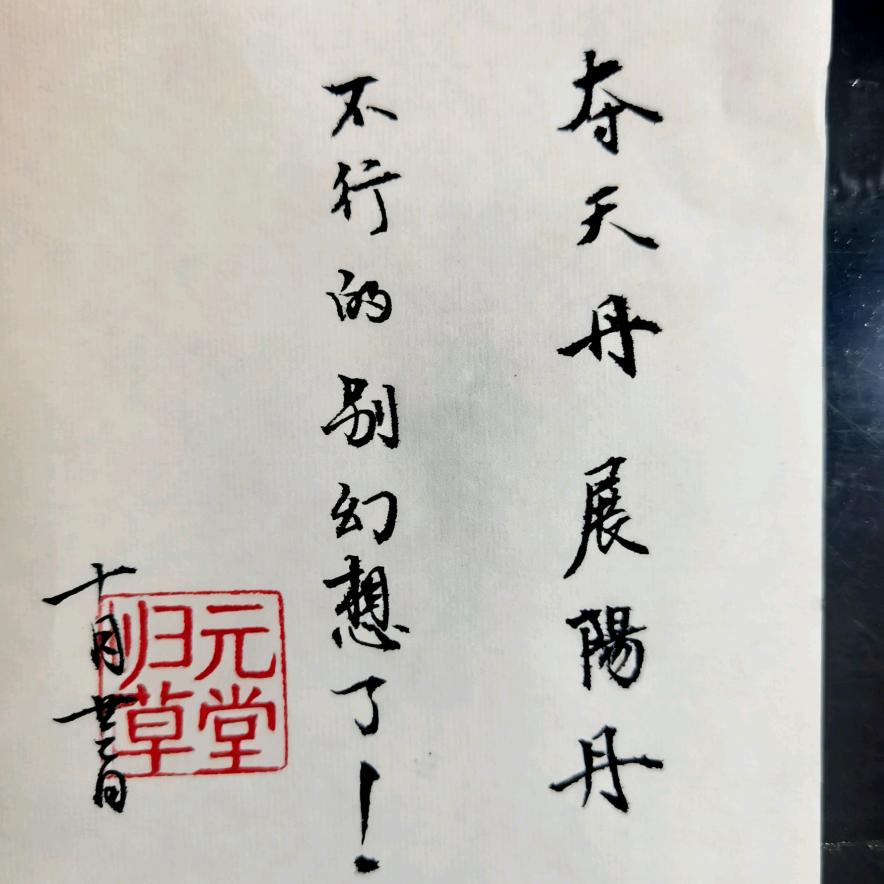 夺天丹 展陽丹
不行的别幻想了！
十月廿三日
元堂
归草